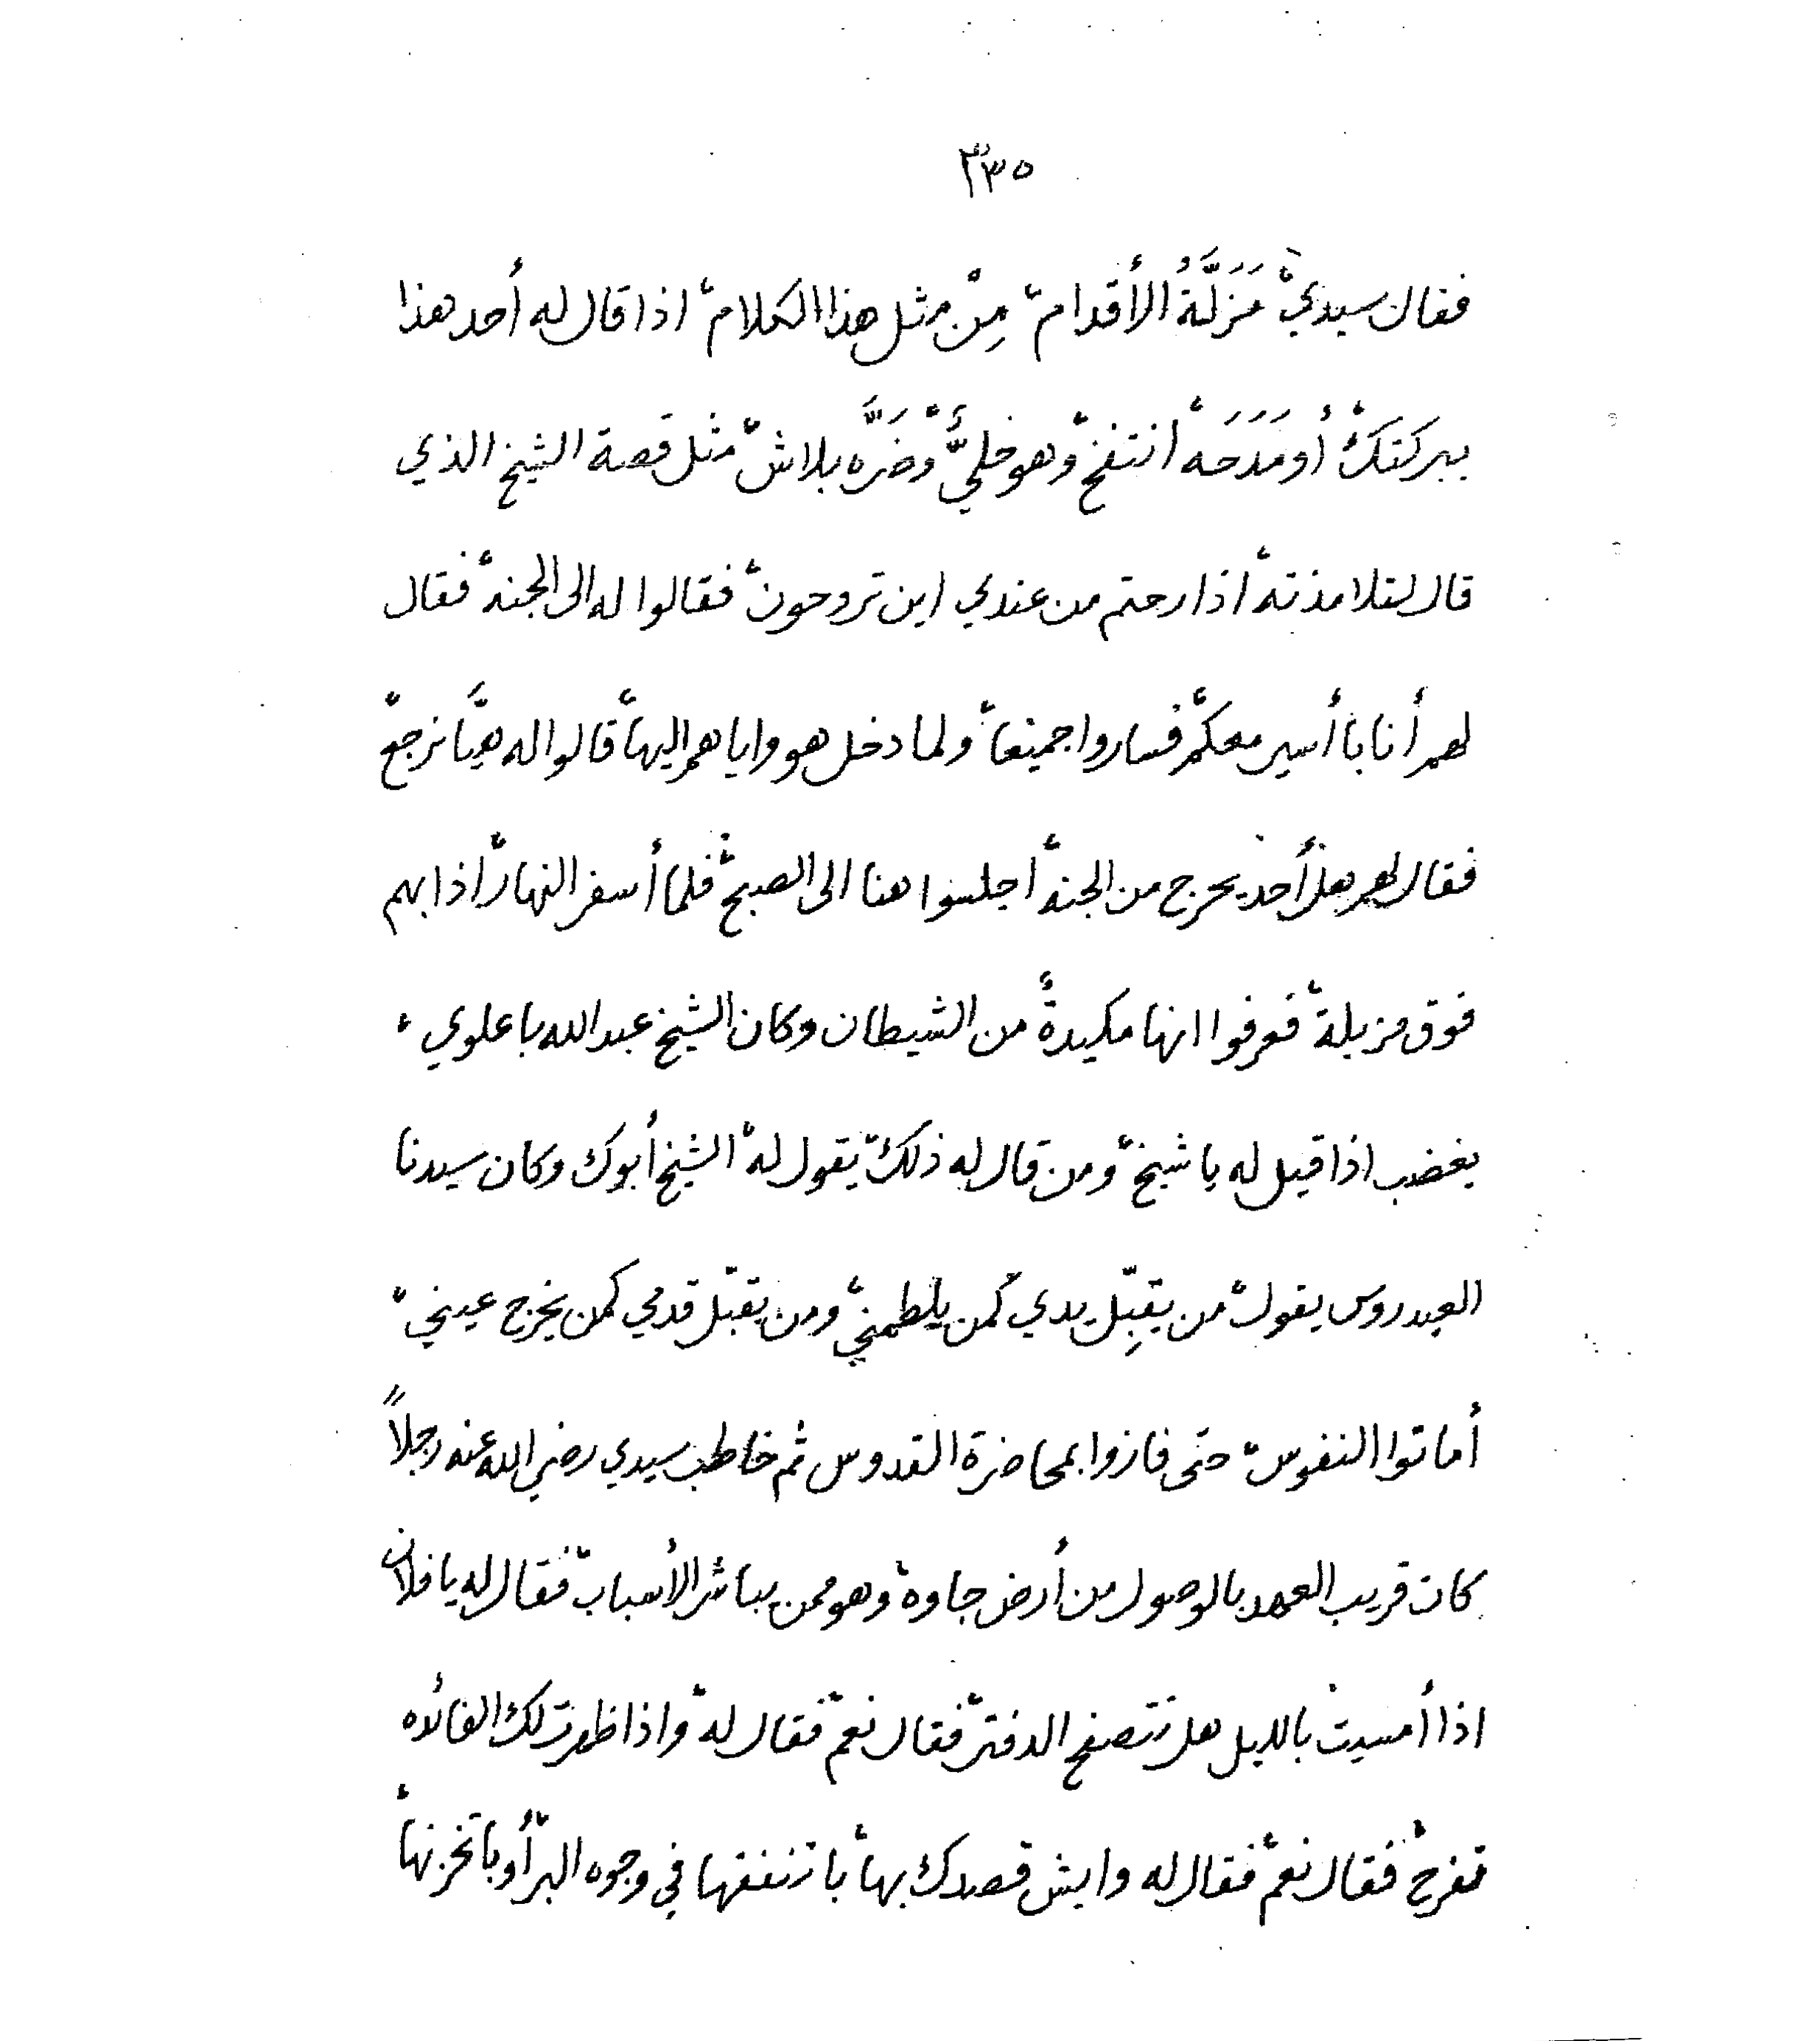 ٣٣٥
فقال سيدي، مَزَلَّةُ الأقدام، مِنْ مثل هذا الكلام، اذا قال له أحد هذا
ببركتك، أو مَدَحَه، انتفخ، وهو خليٌّ، وضَرَّه بلاش، مثل قصة الشيخ الذي
قال لتلامذته، اذا رحتم من عندي اين تروحون، فقالوا له الى الجنة، فقال
لهم أنا با أسير معكم، فساروا جميعا، ولما دخل هو واياهم اليها، قالوا له هيَّا نرجع،
فقال لهم هل أحد يخرج من الجنة، اجلسوا هنا الى الصبح، فلما أسفر النهار، اذا بهم
فوق مزبلة، فعرفوا انها مكيدةٌ من الشيطان وكان الشيخ عبدالله باعلوي،
يغضب اذا قيل له يا شيخ، ومن قال له ذلك، يقول له، الشيخ أبوك وكان سيدنا
العيدروس يقول، من يقبِّل يدي كمن يلطمني، ومن يقبّل قدمي كمن يخرج عيني،
أماتوا النفوس، حتى فازوا بمحاضرة القدوس ثم خاطب سيدي رضي الله عنه رجلاً
كان قريب العهد بالوصول من أرض جاوة، وهو ممن يباشر الأسباب، فقال له يا فلان
اذا أمسيت بالليل هل تتصفح الدفتر، فقال نعم، فقال له، واذا ظهرت لك الفائده
تفرح، فقال نعم، فقال له وايش قصدك بها، با تنفقها في وجوه البر، أو با تخزنها،